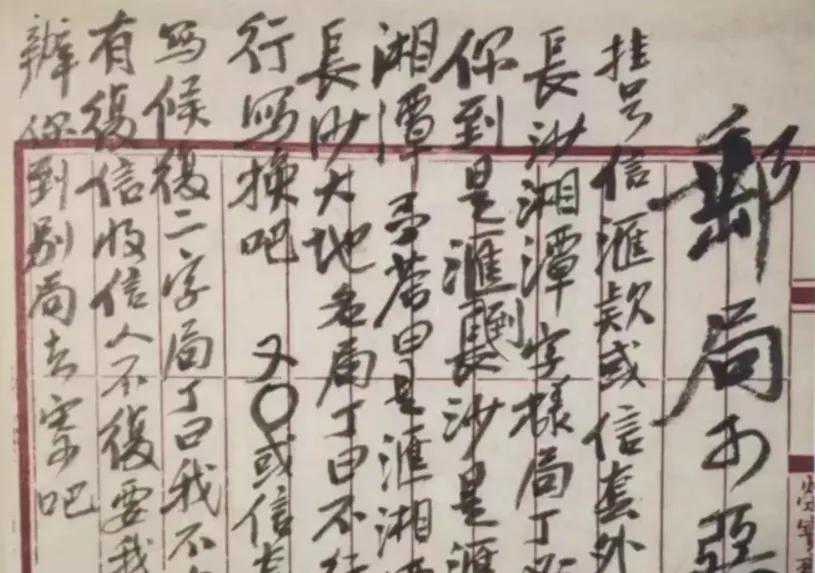 郵局之
挂号信滙款或信套外
長沙湘潭字樣局丁必
你到是滙到長沙是滙
湘潭 予答曰是滙湘潭
長沙大地名局丁曰不行
行寫换吧 又〇或信套
寫候復二字局丁曰我不
有復信收信人不復要我
辦你到别局去寄吧